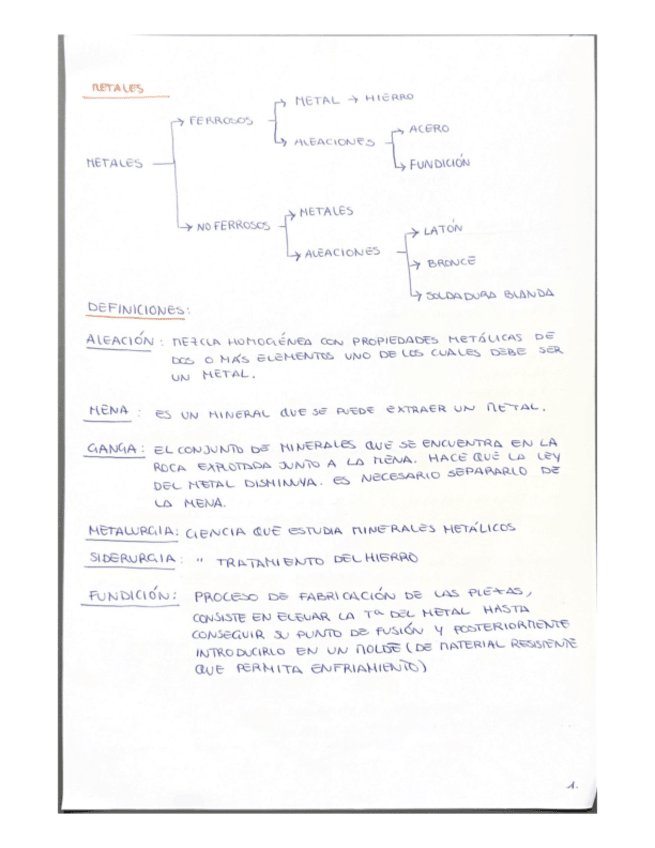 METALES
METAL → HIERRO
FERROSOS
ALEACIONES
ACERO
METALES
FUNDICIÓN
METALES
NO FERROSOS
LATÓN
ALEACIONES
BRONCE
SOLDADURA BLANDA
DEFINICIONES:
ALEACIÓN: MEZCLA HOMOGÉNEA CON PROPIEDADES METÁLICAS DE
DOS O MÁS ELEMENTOS UNO DE LOS CUALES DEBE SER
UN METAL.
MENA: ES UN MINERAL QUE SE PUEDE EXTRAER UN METAL.
GANGA: EL CONJUNTO DE MINERALES QUE SE ENCUENTRA EN LA
ROCA EXPLOTADA JUNTO A LA MENA. HACE QUE LA LEY
DEL METAL DISMINUYA. ES NECESARIO SEPARARLO DE
LA MENA.
METALURGIA: CIENCIA QUE ESTUDIA MINERALES METÁLICOS
SIDERURGIA: " TRATAMIENTO DEL HIERRO
FUNDICIÓN: PROCESO DE FABRICACIÓN DE LAS PIEZAS,
CONSISTE EN ELEVAR LA Tª DEL METAL HASTA
CONSEGUIR SU PUNTO DE FUSIÓN Y POSTERIORMENTE
INTRODUCIRLO EN UN MOLDE (DE MATERIAL RESISTENTE
QUE PERMITA ENFRIAMIENTO)
1.